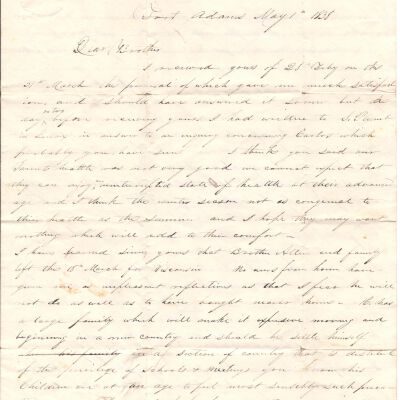 Fort Adams May 1st 1838
Dear Brother
I received yours of 28 Feby on the
21st March the perusal of which gave me much satisfact
ion, and I should have answered it sooner but the
day before receiving yours I had written to
in answer to a concerning which
probably you have seen I think you said our
Parents health was not very good we cannot expect that
they can enjoy uninterrupted state of health at their advanced
age and I think the winter season not as congenial to
their health as the Summer and I hope they may want
nothing which will add to their comfort
I have learned since yours that Brother Allen and family
left the 15th March for Wisconsin
give me unpleasant reflections as that I fear he will
not do as well as to have bought nearer home - He has
a large family which will make it expensive moving and
beginning in a new country and should he settle himself
in a section of country that is destitute
of the privilege of Schools & Meetings you know his
Children are at an age to feel most sensibly such priva